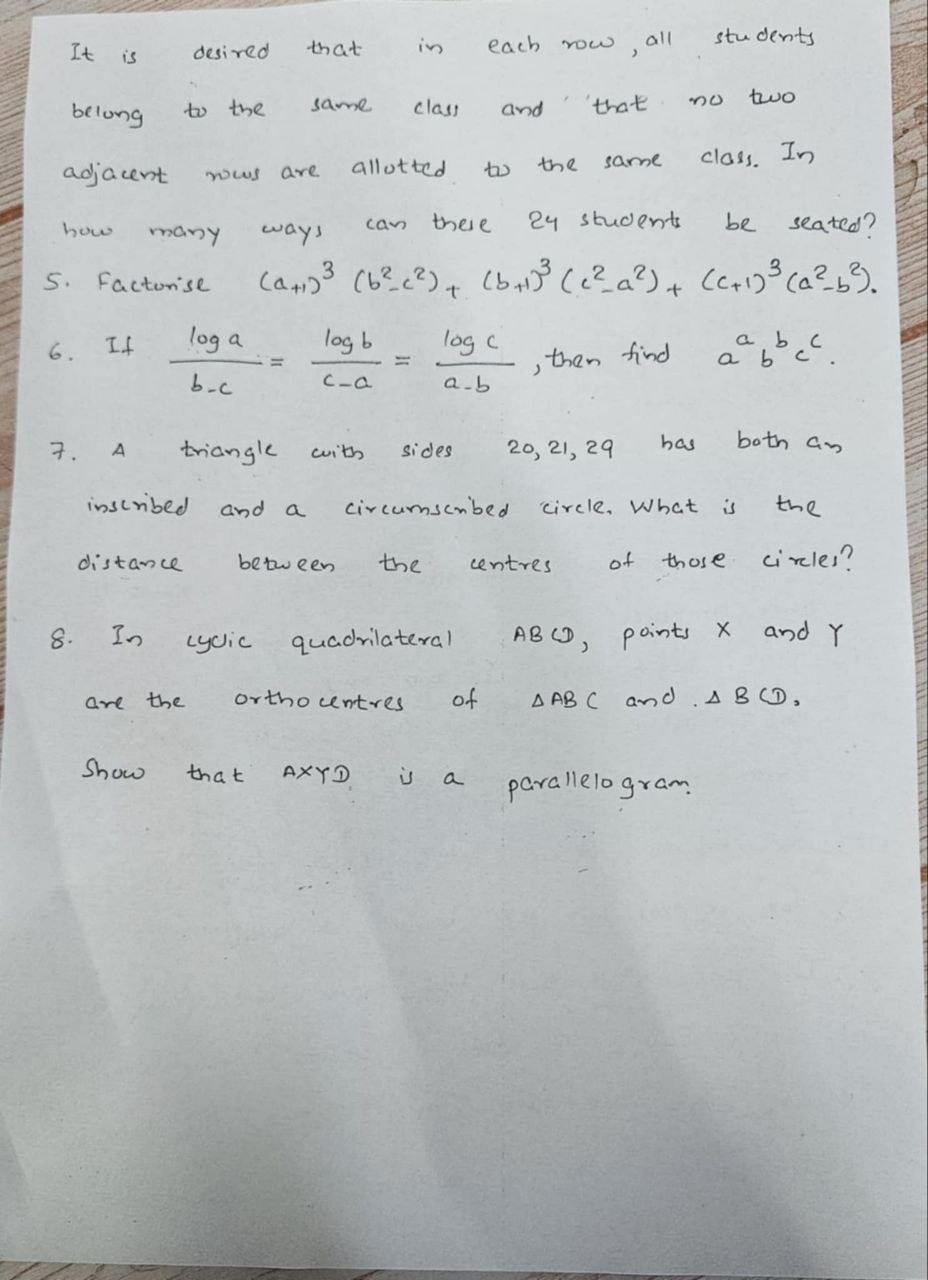 It is desired that in each row, all students
belong to the same class and that no two
adjacent rows are allotted to the same class. In
how many ways can these 24 students be seated?
5. Factorise (a+1)³ (b²-c²) + (b+1)³ (c²-a²) + (c+1)³ (a²-b²).
6. If log a / b-c = log b / c-a = log c / a-b , then find a^a b^b c^c.
7. A triangle with sides 20, 21, 29 has both an
inscribed and a circumscribed circle. What is the
distance between the centres of those circles?
8. In cyclic quadrilateral ABCD, points X and Y
are the orthocentres of Δ ABC and Δ BCD.
Show that AXYD is a parallelogram.